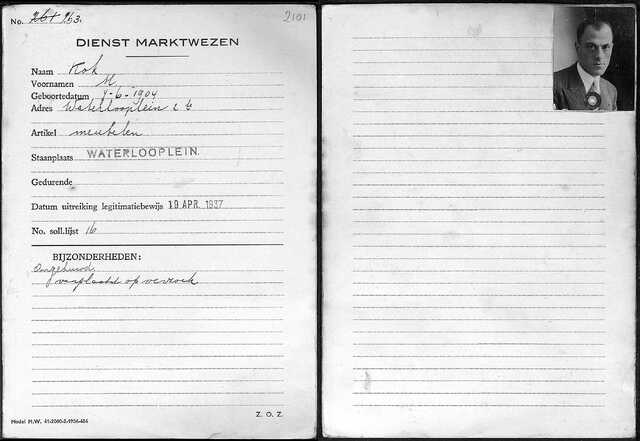 No. 261 263. 2101
DIENST MARKTWEZEN
Naam Kok
Voornamen M.
Geboortedatum 4-6-1904
Adres Waterlooplein
Artikel meubelen
Staanplaats WATERLOOPLEIN.
Gedurende
Datum uitreiking legitimatiebewijs 19 APR. 1937
No. soll.lijst 16
BIJZONDERHEDEN:
Ongehuwd
verplaatst op verzoek
Model M.W. 41-2000-2-1936-486
Z. O. Z.